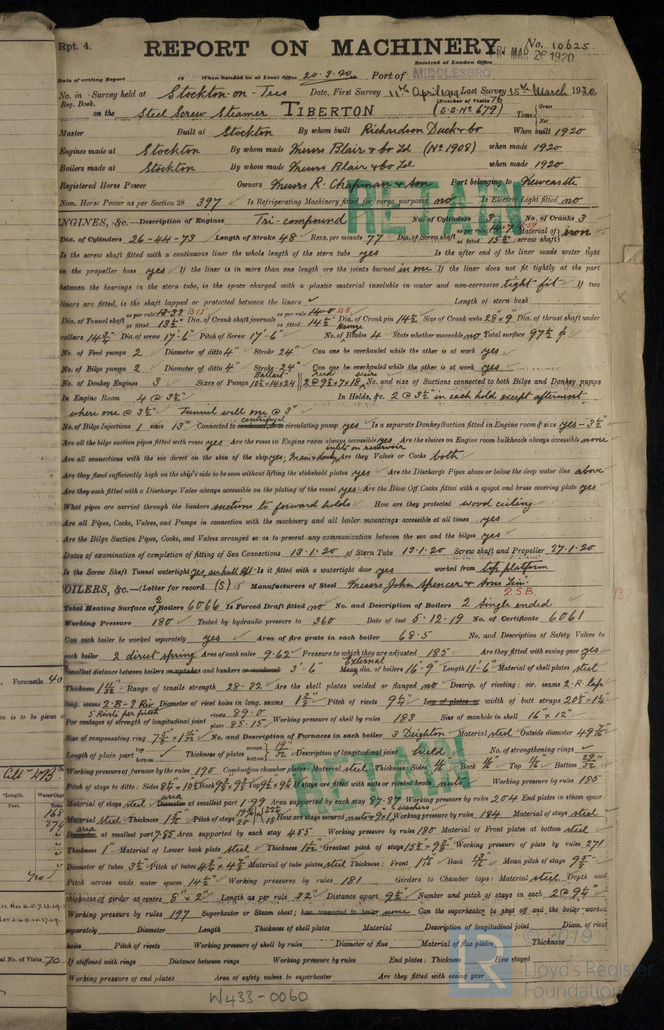 Rpt. 4.
REPORT ON MACHINERY
No. 10625
FRI MAR 26 1920
Received at London Office
Date of writing Report 19 When handed in at Local Office 20.3.20 Port of MIDDLESBRO
No. in Survey held at Stockton-on-Tees Date, First Survey 11th April 1919 Last Survey 15th March 1920
Reg. Book. (Number of Visits 76
on the Steel Screw Steamer TIBERTON (S.S. No 679) Tons Gross Net
Master Built at Stockton By whom built Richardson Duck & Co When built 1920
Engines made at Stockton By whom made Messrs Blair & Co Ld (No 1908) when made 1920
Boilers made at Stockton By whom made Messrs Blair & Co Ld when made 1920
Registered Horse Power Owners Messrs R. Chapman & Son Port belonging to Newcastle
Nom. Horse Power as per Section 28 397 Is Refrigerating Machinery fitted for cargo purposes no Is Electric Light fitted no
RETAIN
ENGINES, &c.—Description of Engines Tri-compound No. of Cylinders 3 No. of Cranks 3
Dia. of Cylinders 26-44-73 Length of Stroke 48 Revs. per minute 77 Dia. of Screw shaft as per rule 14.7 as fitted 15½ Material of screw shaft iron
Is the screw shaft fitted with a continuous liner the whole length of the stern tube yes Is the after end of the liner made water tight
in the propeller boss yes If the liner is in more than one length are the joints burned in one If the liner does not fit tightly at the part
between the bearings in the stern tube, is the space charged with a plastic material insoluble in water and non-corrosive tight fit If two
liners are fitted, is the shaft lapped or protected between the liners Length of stern bush
Dia. of Tunnel shaft as per rule 13.33 as fitted 13½ Dia. of Crank shaft journals as per rule 14.0 as fitted 14½ Dia. of Crank pin 14½ Size of Crank webs 28×9 Dia. of thrust shaft under
collars 14¾ Dia. of screw 17'-6" Pitch of Screw 17'-6" No. of Blades 4 State whether moveable no Total surface 97½
No. of Feed pumps 2 Diameter of ditto 4" Stroke 24" Can one be overhauled while the other is at work yes
No. of Bilge pumps 2 Diameter of ditto 4" Stroke 24" Can one be overhauled while the other is at work yes
No. of Donkey Engines 3 Sizes of Pumps No. and size of Suctions connected to both Bilge and Donkey pumps
In Engine Room 4 @ 3½" In Holds, &c. 2 @ 3½" in each hold except aftermost
where one @ 3½" Tunnel well one @ 3"
No. of Bilge Injections 1 size 13" Connected to centrifugal circulating pump yes Is a separate Donkey Suction fitted in Engine room & size yes - 3½"
Are all the bilge suction pipes fitted with roses yes Are the roses in Engine room always accessible yes Are the sluices on Engine room bulkheads always accessible none
Are all connections with the sea direct on the skin of the ship yes, Main & donkey inlets on reservoir Are they Valves or Cocks both
Are they fixed sufficiently high on the ship's side to be seen without lifting the stokehold plates yes Are the Discharge Pipes above or below the deep water line above
Are they each fitted with a Discharge Valve always accessible on the plating of the vessel yes Are the Blow Off Cocks fitted with a spigot and brass covering plate yes
What pipes are carried through the bunkers suctions to forward holds How are they protected wood ceiling
Are all Pipes, Cocks, Valves, and Pumps in connection with the machinery and all boiler mountings accessible at all times yes
Are the Bilge Suction Pipes, Cocks, and Valves arranged so as to prevent any communication between the sea and the bilges yes
Dates of examination of completion of fitting of Sea Connections 13.1.20 of Stern Tube 13.1.20 Screw shaft and Propeller 27.1.20
Is the Screw Shaft Tunnel watertight Is it fitted with a watertight door yes worked from top platform
OILERS, &c.—(Letter for record (S) ) Manufacturers of Steel Messrs John Spencer & Sons Lim
2 S.B.
Total Heating Surface of 2 Boilers 6066 Is Forced Draft fitted no No. and Description of Boilers 2 Single ended
Working Pressure 180 Tested by hydraulic pressure to 360 Date of test 5.12.19 No. of Certificate 6061
Can each boiler be worked separately yes Area of fire grate in each boiler 68.5 No. and Description of Safety Valves to
each boiler 2 direct spring Area of each valve 9.62 Pressure to which they are adjusted 185 Are they fitted with easing gear yes
Smallest distance between boilers or uptakes and bunkers or woodwork 3'-6" External dia. of boilers 16'-9" Length 11'-6" Material of shell plates steel
Thickness Range of tensile strength 28-32 Are the shell plates welded or flanged no Descrip. of riveting: cir. seams 2-R-lap
long. seams 2-B-3 Riv Diameter of rivet holes in long. seams Pitch of rivets Lap of plates or width of butt straps
5 Rivets per pitch
Per centages of strength of longitudinal joint rivets 89.0 plate 85.15 Working pressure of shell by rules 183 Size of manhole in shell 16"×12"
Size of compensating ring No. and Description of Furnaces in each boiler 3 Deighton Material steel Outside diameter
Length of plain part top bottom Thickness of plates crown bottom 19/32 Description of longitudinal joint weld No. of strengthening rings
Working pressure of furnace by the rules 190 Combustion chamber plates: Material steel Thickness: Sides Back Top Bottom
Pitch of stays to ditto: Sides Back Top If stays are fitted with nuts or riveted heads nuts Working pressure by rules 185
Material of stays steel area at smallest part 1.99 Area supported by each stay 87.37 Working pressure by rules 204 End plates in steam space
Material steel Thickness Pitch of stays How are stays secured nuts & washers Working pressure by rules 184 Material of stays steel
area at smallest part 7.85 Area supported by each stay 455 Working pressure by rules 180 Material of Front plates at bottom steel
Thickness 1" Material of Lower back plate steel Thickness Greatest pitch of stays Working pressure of plate by rules 271
Diameter of tubes 3½" Pitch of tubes Material of tube plates steel Thickness: Front Back Mean pitch of stays
Pitch across wide water spaces 14½" Working pressures by rules 181 Girders to Chamber tops: Material steel Depth and
thickness of girder at centre 8"×2" Length as per rule 32" Distance apart 9½" Number and pitch of stays in each 2 @ 9¼"
Working pressure by rules 197 Superheater or Steam chest; how connected to boiler none Can the superheater be shut off and the boiler worked
separately Diameter Length Thickness of shell plates Material Description of longitudinal joint Diam. of rivet
holes Pitch of rivets Working pressure of shell by rules Diameter of flue Material of flue plates Thickness
If stiffened with rings Distance between rings Working pressure by rules End plates: Thickness How stayed
Working pressure of end plates Area of safety valves to superheater Are they fitted with easing gear
RETAIN
W433-0060
© 2019
Lloyd's Register
Foundation
Forecastle 40
Yes
No. of Visits 70